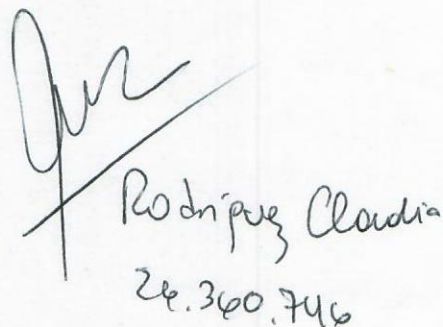 Rodríguez Claudia
24.360.746